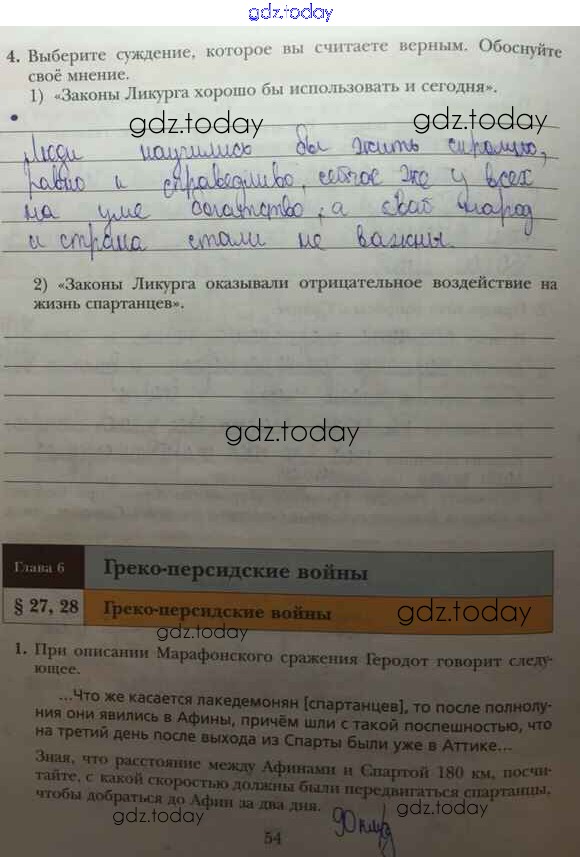 gdz.today
4. Выберите суждение, которое вы считаете верным. Обоснуйте
своё мнение.
1) «Законы Ликурга хорошо бы использовать и сегодня».
gdz.today gdz.today
Люди научились бы жить скромно,
равно и справедливо, сейчас же у всех
на уме богатство, а свой народ
и страна стали не важны.
2) «Законы Ликурга оказывали отрицательное воздействие на
жизнь спартанцев».
gdz.today
Глава 6 Греко-персидские войны
§ 27, 28 Греко-персидские войны
gdz.today
gdz.today
1. При описании Марафонского сражения Геродот говорит следу-
ющее.
...Что же касается лакедемонян [спартанцев], то после полнолу-
ния они явились в Афины, причём шли с такой поспешностью, что
на третий день после выхода из Спарты были уже в Аттике...
Зная, что расстояние между Афинами и Спартой 180 км, посчи-
тайте, с какой скоростью должны были передвигаться спартанцы,
чтобы добраться до Афин за два дня.
gdz.today gdz.today
54